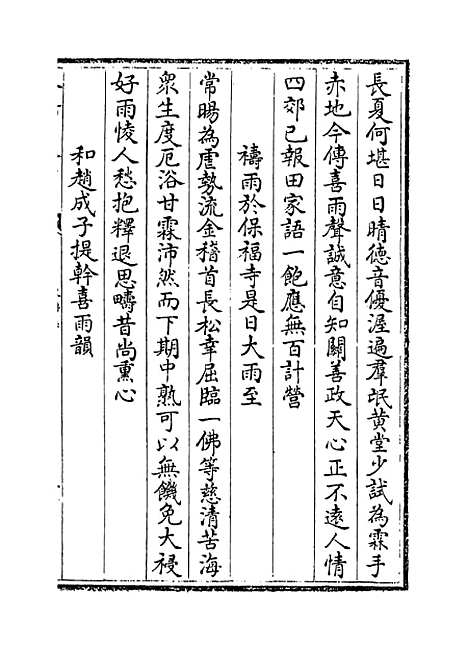 長夏何堪日日晴德音優渥遍羣氓黄堂少試為霖手
赤地今傳喜雨聲誠意自知關善政天心正不逺人情
四郊已報田家語一飽應無百計營
禱雨於保福寺是日大雨至
常暘為虐勢流金稽首長松幸屈臨一佛等慈清苦海
衆生度厄浴甘霖沛然而下期中熟可以無饑免大祲
好雨悛人愁抱釋退思疇昔尚熏心
和趙成子提幹喜雨韻